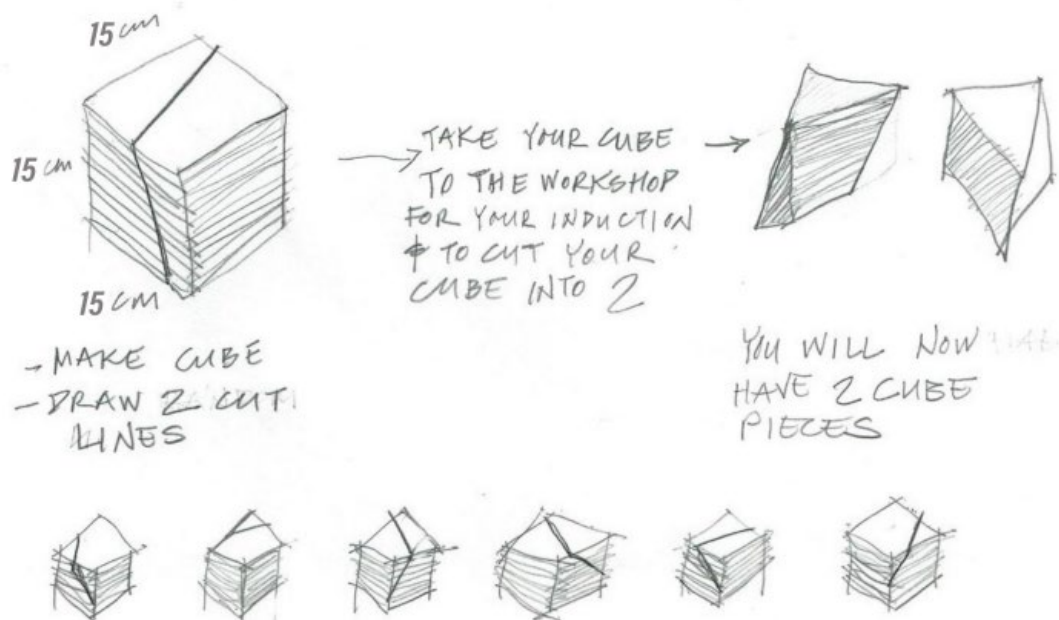 15 cm
15 cm
15 cm
→ MAKE CUBE
- DRAW 2 CUT
LINES
TAKE YOUR CUBE
TO THE WORKSHOP
FOR YOUR INDUCTION
& TO CUT YOUR
CUBE INTO 2
YOU WILL NOW
HAVE 2 CUBE
PIECES